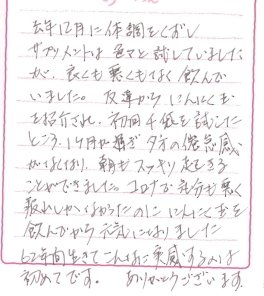 去年12月に体調をくずし
サプリメントは色々と試していました
が、良くも悪くもなく飲んで
いました。友達からにんにく玉
を紹介され、初回1袋を試した
ところ、1ヶ月が過ぎ夕方の倦怠感
がなくなり、朝もスッキリ起きる
ことができました。コロナで気分も悪く
疲れしかなかったのににんにく玉を
飲んでから元気になりました
62年間生きてこんなに実感するのは
初めてです。 ありがとうございます。